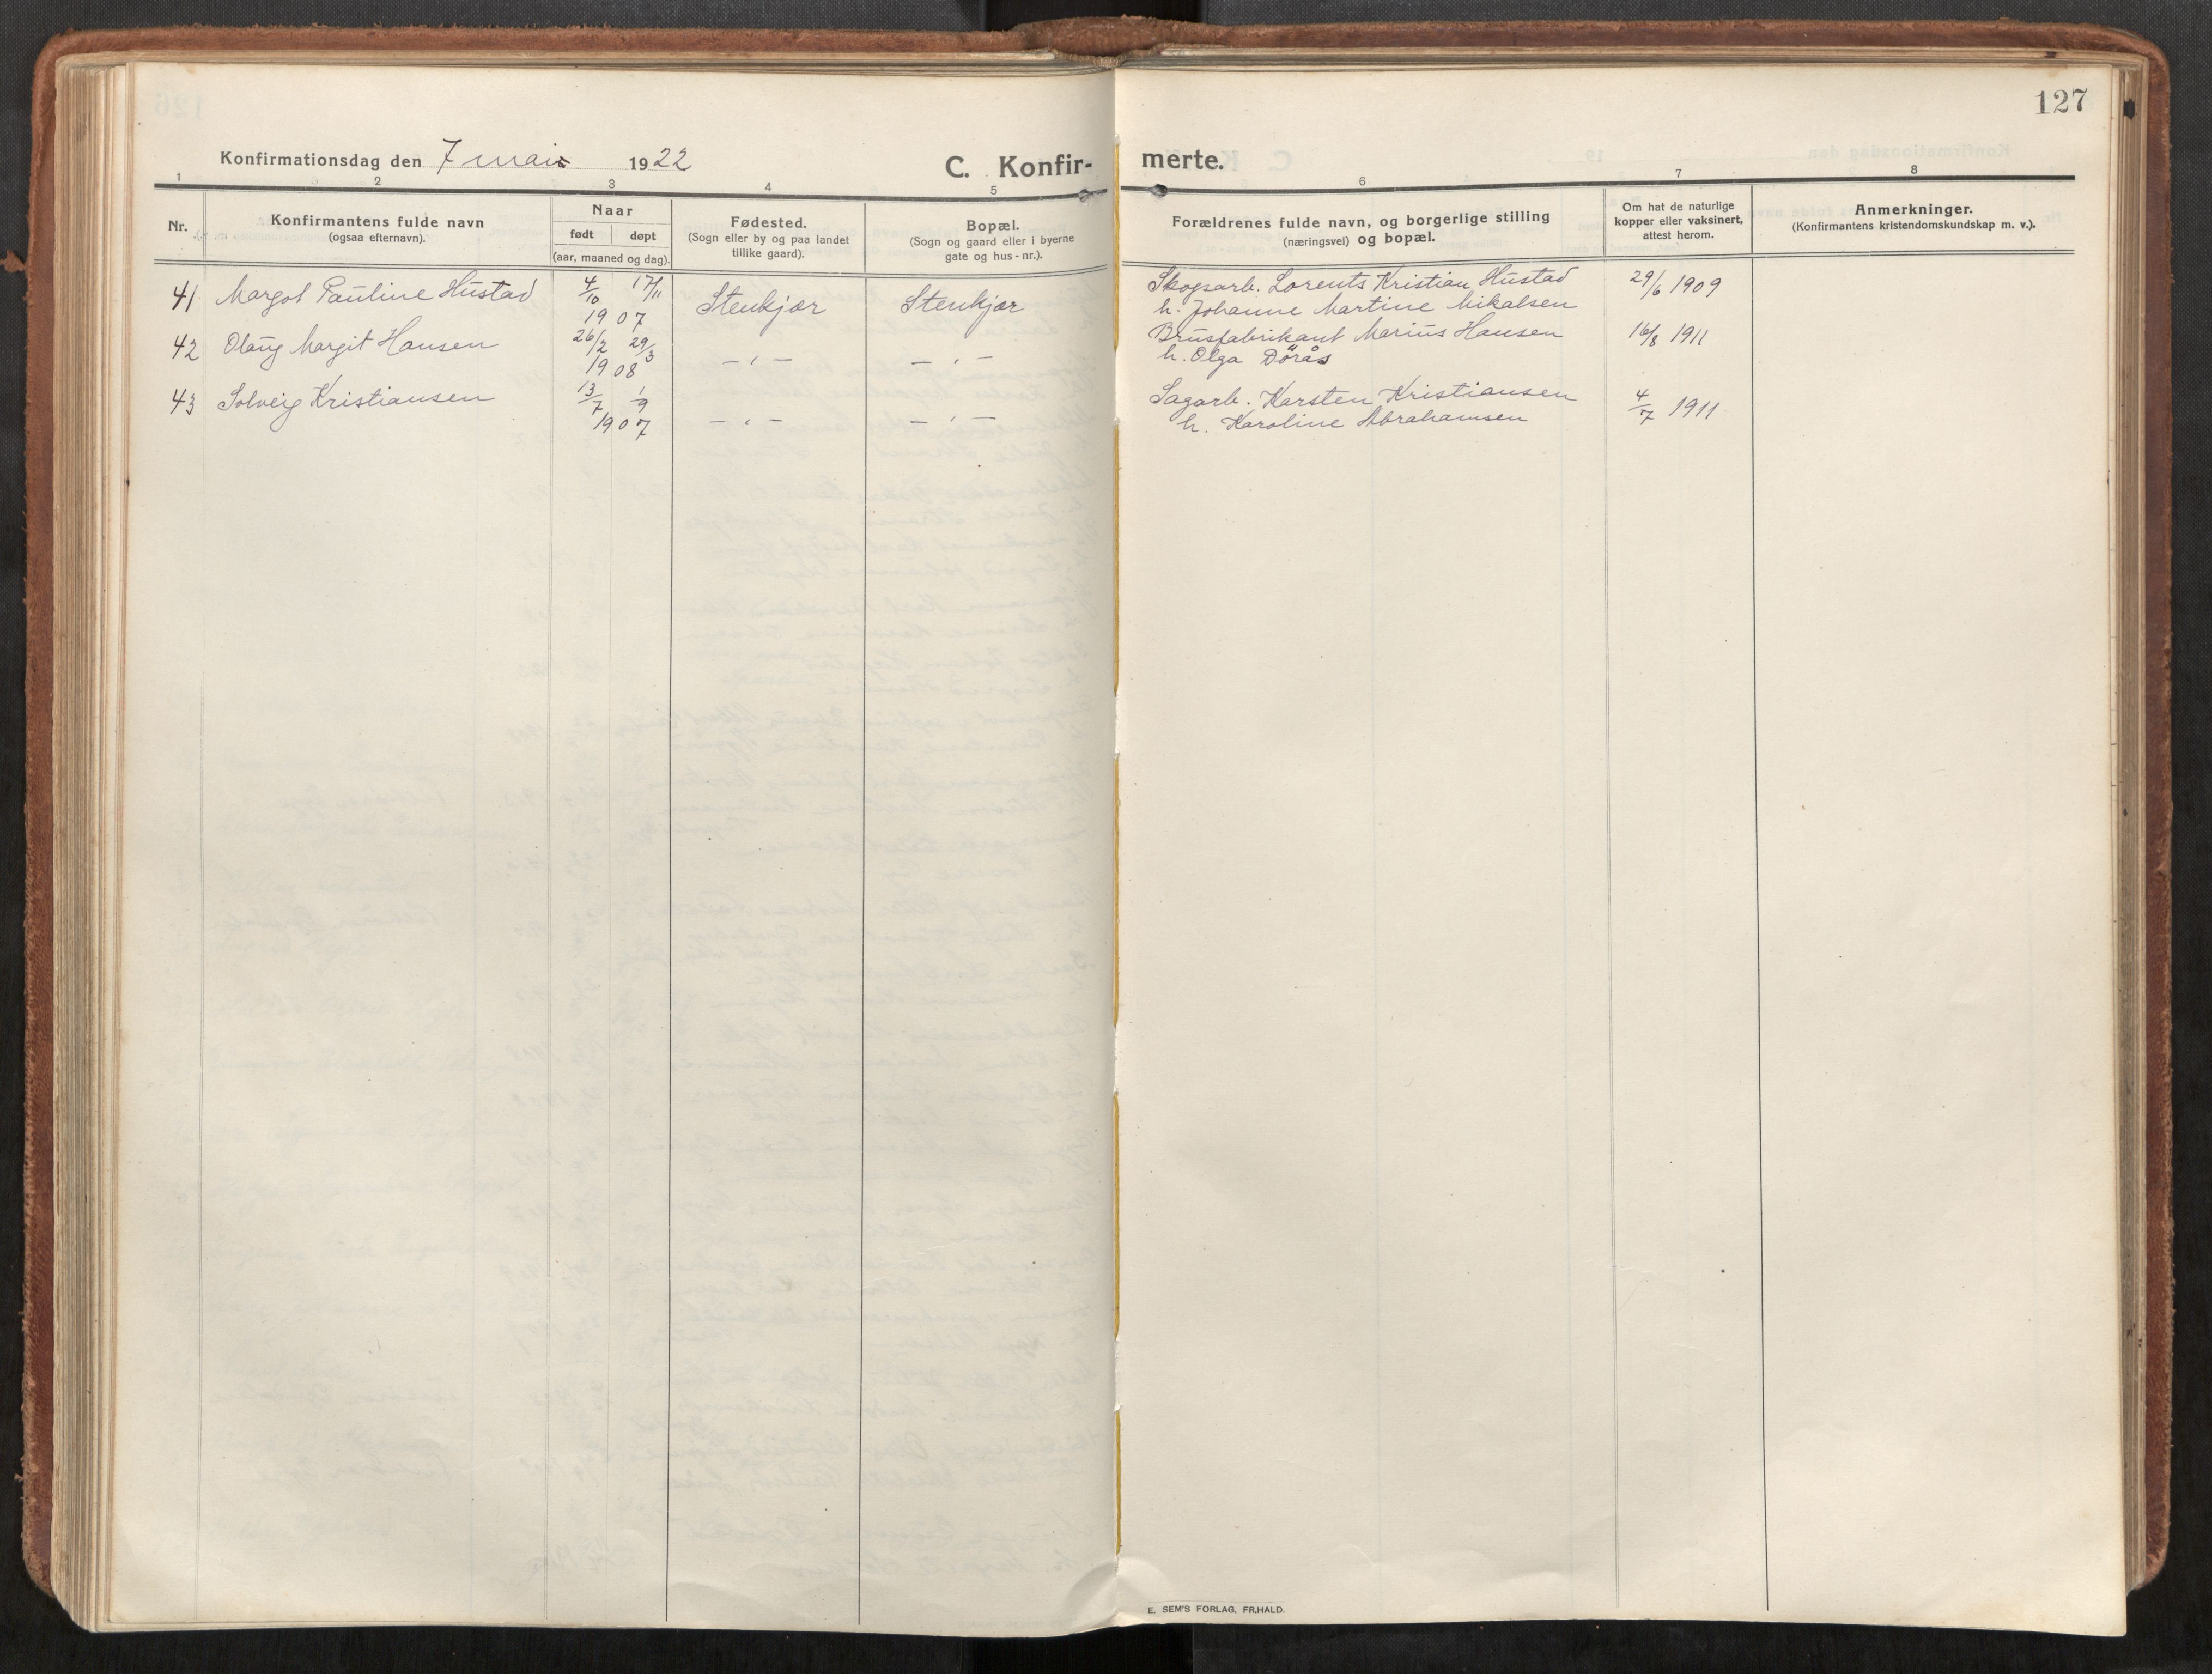 127
Konfirmationsdag den 7 mai 1922
C. Konfirmerte.
1 2 3 4 5 6 7 8
Nr.
Konfirmantens fulde navn
(ogsaa efternavn).
Naar
født døpt
(aar, maaned og dag).
Fødested.
(Sogn eller by og paa landet
tillike gaard).
Bopæl.
(Sogn og gaard eller i byerne
gate og hus-nr.).
Forældrenes fulde navn, og borgerlige stilling
(næringsvei) og bopæl.
Om hat de naturlige
kopper eller vaksinert,
attest herom.
Anmerkninger.
(Konfirmantens kristendomskundskap m. v.).
41 Margot Pauline Hustad 4/10 17/11 1907 Stenkjær Stenkjær Skogsarb. Lorents Kristian Hustad 29/6 1909
h. Johanne Martine Mikalsen
42 Olaug Margit Hansen 26/2 29/3 1908 – " – – " – Brusfabrikant Marius Hansen 16/8 1911
h. Olga Dørås
43 Solveig Kristiansen 13/7 1/9 1907 – " – – " – Sagarb. Karsten Kristiansen 4/7 1911
h. Karoline Abrahamsen
E. SEM'S FORLAG, FR.HALD.